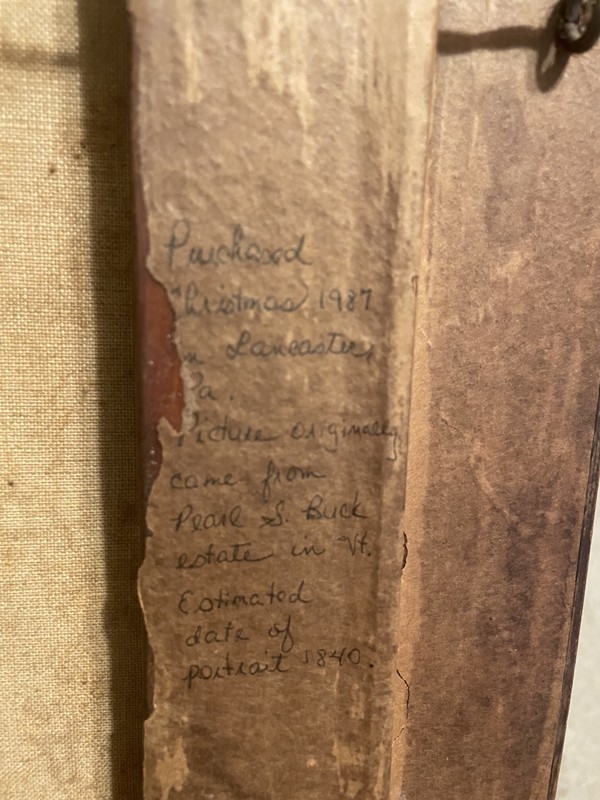 Purchased
Christmas 1987
in Lancaster,
Pa.
Picture originally
came from
Pearl S. Buck
estate in Vt.
Estimated
date of
portrait 1840.